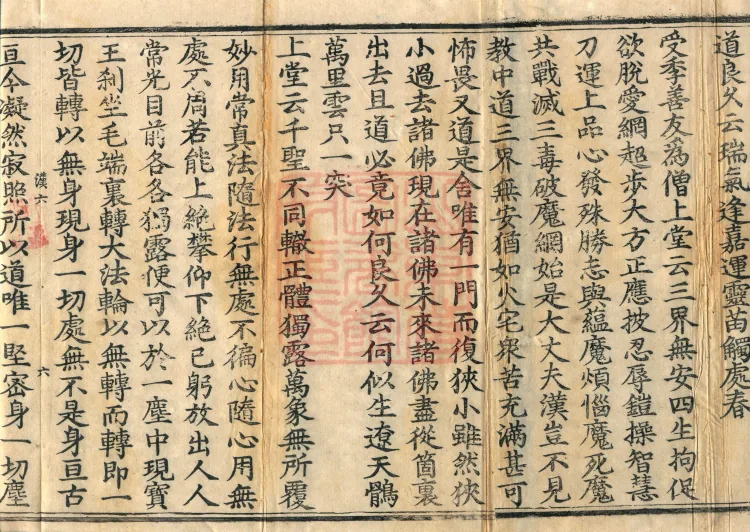 道良久云瑞氣逢嘉運靈苗觸處春
受季善友為僧上堂云三界無安四生拘促
欲脫愛網超步大方正應披忍辱鎧操智慧
刀運上品心發殊勝志與蘊魔煩惱魔死魔
共戰滅三毒破魔網始是大丈夫漢豈不見
教中道三界無安猶如火宅眾苦充滿甚可
怖畏又道是舍唯有一門而復狹小雖然狹
小過去諸佛現在諸佛未來諸佛盡從箇裏
出去且道必竟如何良久云何似生遼天鶻
萬里雲只一突
上堂云千聖不同轍正體獨露萬象無所覆
妙用常真法隨法行無處不徧心隨心用無
處不周若能上絕攀仰下絕己躬放出人人
常光目前各各獨露便可以於一塵中現寶
王剎坐毛端裏轉大法輪以無轉而轉即一
切皆轉以無身現身一切處無不是身亘古
漢六
六
亘今凝然寂照所以道唯一堅密身一切塵